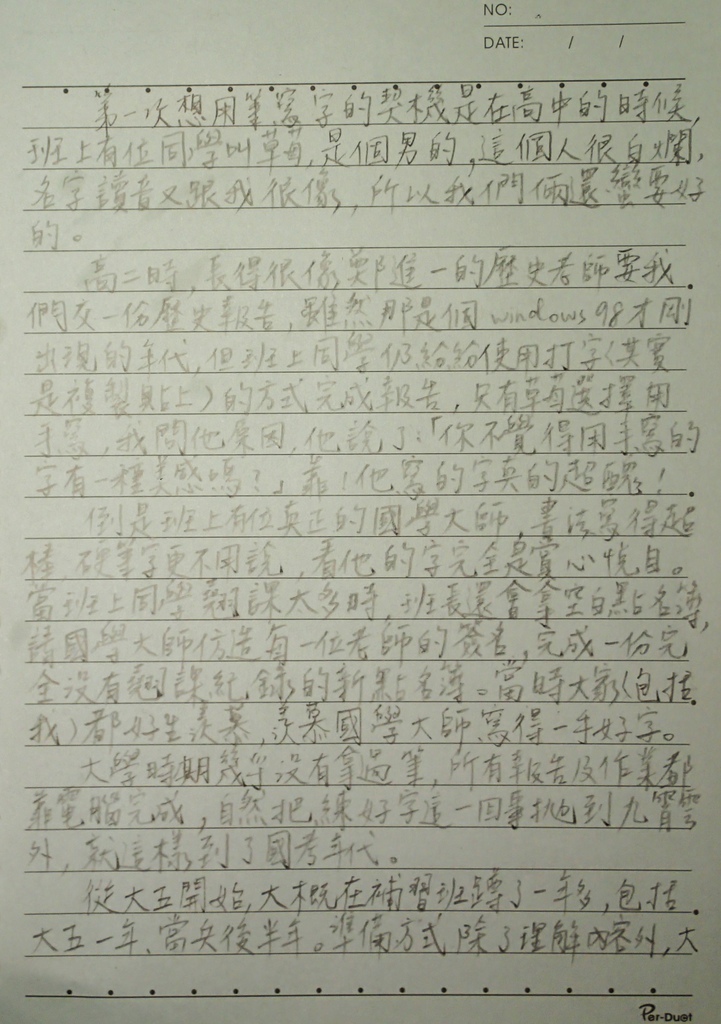 NO:
DATE: / /
第一次想用筆寫字的契機是在高中的時候,
班上有位同學叫草莓,是個男的,這個人很白爛,
名字讀音又跟我很像,所以我們倆還蠻要好
的。
高二時,長得很像鄭進一的歷史老師要我
們交一份歷史報告,雖然那是個windows 98才剛
出現的年代,但班上同學仍紛紛使用打字(其實
是複製貼上)的方式完成報告,只有草莓選擇用
手寫,我問他原因,他說了:「你不覺得用手寫的
字有一種美感嗎?」靠!他寫的字真的超醜!
倒是班上有位真正的國學大師,書法寫得超
棒,硬筆字更不用說,看他的字完全是賞心悅目。
當班上同學翹課太多時,班長還會拿空白點名簿,
請國學大師仿造每一位老師的簽名,完成一份完
全沒有翹課紀錄的新點名簿。當時大家(包括
我)都好生羨慕,羨慕國學大師寫得一手好字。
大學時期幾乎沒有拿過筆,所有報告及作業都
靠電腦完成,自然把練好字這一回事拋到九霄雲
外,就這樣到了國考年代。
從大五開始,大概在補習班蹲了一年多,包括
大五一年、當兵後半年。準備方式除了理解內容外,大
Per-Duet